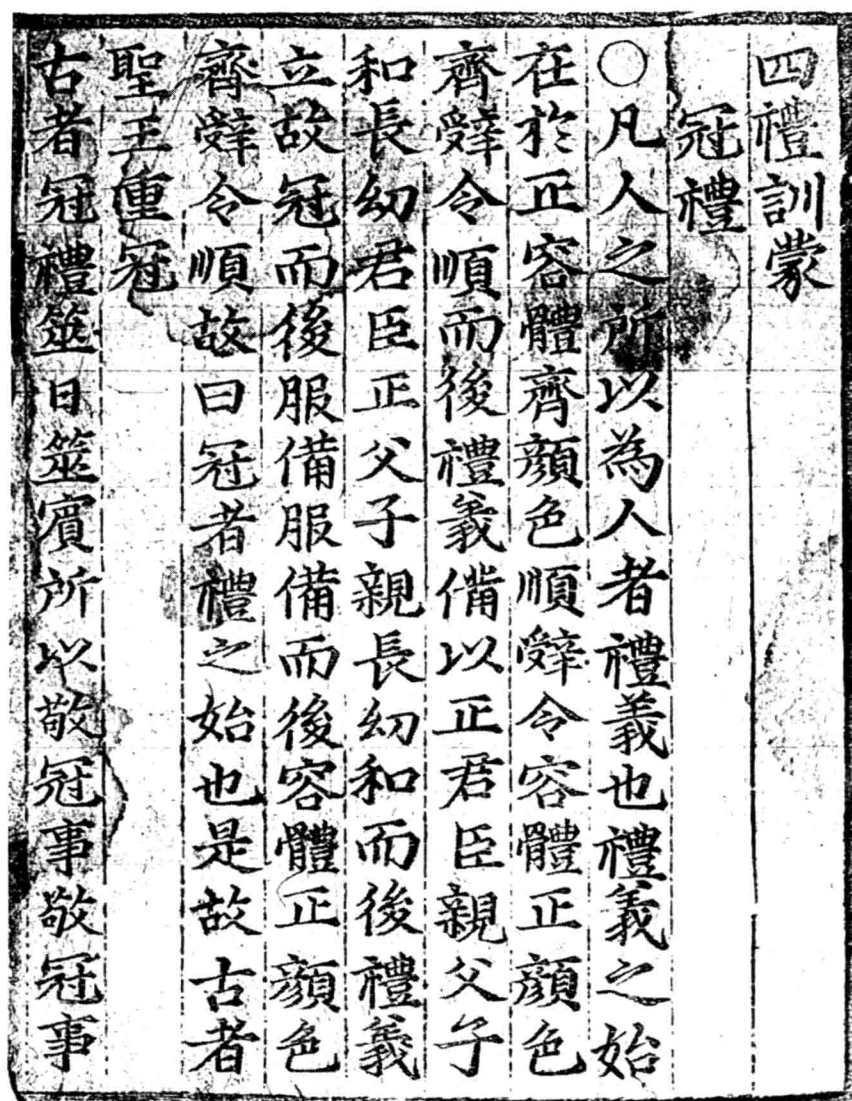 四禮訓蒙
冠禮
○凡人之所以為人者禮義也禮義之始
在於正容體齊顔色順辭令容體正顔色
齊辭令順而後禮義備以正君臣親父子
和長幼君臣正父子親長幼和而後禮義
立故冠而後服備服備而後容體正顔色
齊辭令順故曰冠者禮之始也是故古者
聖王重冠
古者冠禮筮日筮賓所以敬冠事敬冠事